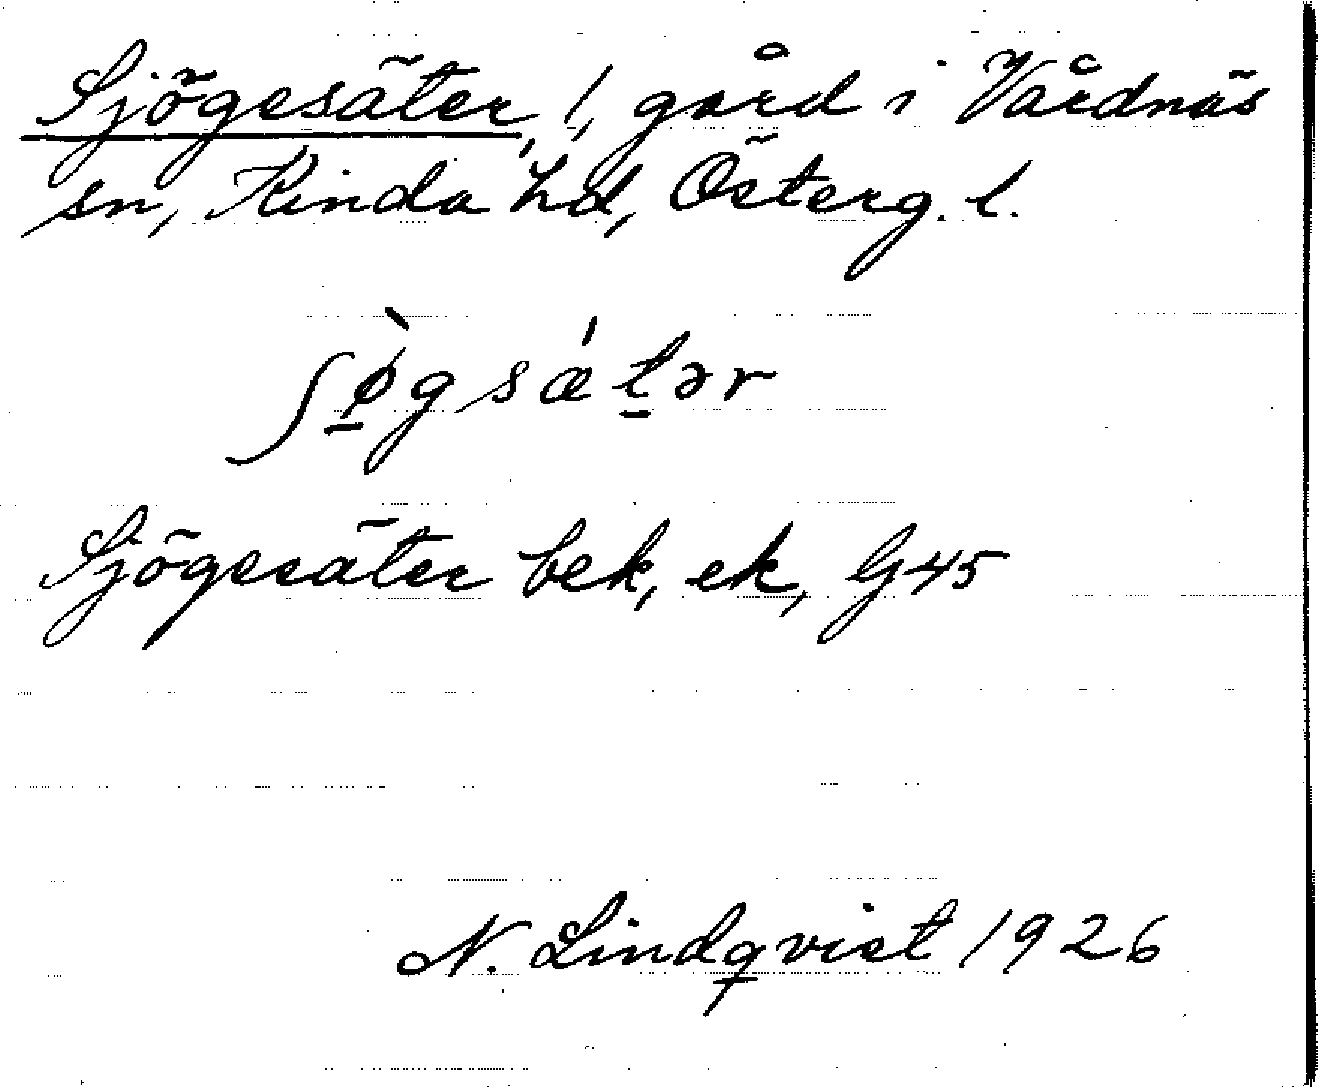 Sjögesäter, 1, gård i Vårdnäs
sn, Kinda hd, Österg. l.
ʃø̠̀gsǽt̠ər
Sjögesäter bek, ek, G45
N. Lindqvist 1926